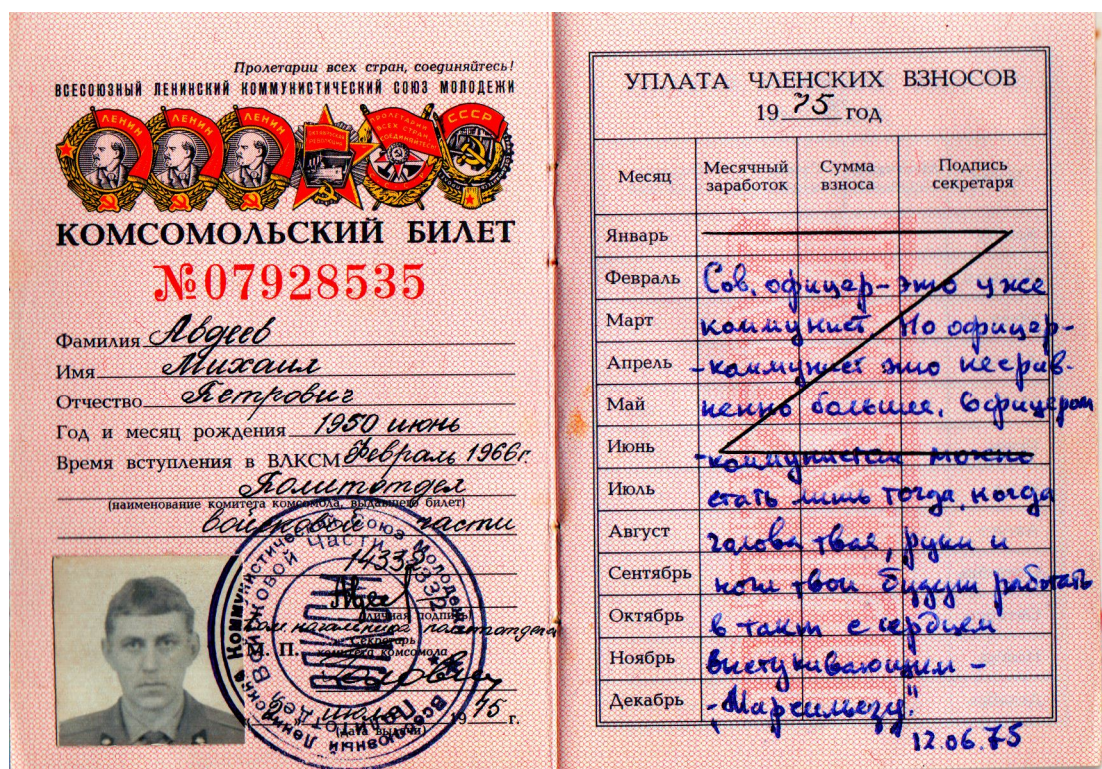 Пролетарии всех стран, соединяйтесь!
ВСЕСОЮЗНЫЙ ЛЕНИНСКИЙ КОММУНИСТИЧЕСКИЙ СОЮЗ МОЛОДЕЖИ
ЛЕНИН ЛЕНИН ЛЕНИН ОКТЯБРЬСКАЯ РЕВОЛЮЦИЯ ПРОЛЕТАРИИ ВСЕХ СТРАН СОЕДИНЯЙТЕСЬ СССР
КОМСОМОЛЬСКИЙ БИЛЕТ
№07928535
Фамилия Авдеев
Имя Михаил
Отчество Петрович
Год и месяц рождения 1950 июнь
Время вступления в ВЛКСМ Февраль 1966г.
Политотдел
(наименование комитета комсомола, выдавшего билет)
войсковой части
14332
(личная подпись)
Зам. начальника политотдела
Секретарь
М. П. комитета комсомола
2 июня 1975 г.
(Дата выдачи)
Всесоюзный Ленинский Коммунистический Союз Молодежи
Политотдел Войсковой Части 14332
УПЛАТА ЧЛЕНСКИХ ВЗНОСОВ
1975 год
Месяц Месячный заработок Сумма взноса Подпись секретаря
Январь
Февраль
Март
Апрель
Май
Июнь
Июль
Август
Сентябрь
Октябрь
Ноябрь
Декабрь
Сов. офицер – это уже
коммунист. Но офицер-
-коммунист это несрав-
ненно больше. Офицером
-коммунистом можно
стать лишь тогда, когда
голова твоя, руки и
ноги твои будут работать
в такт с сердцем
выстукивающим –
-„Марсельезу."
12.06.75